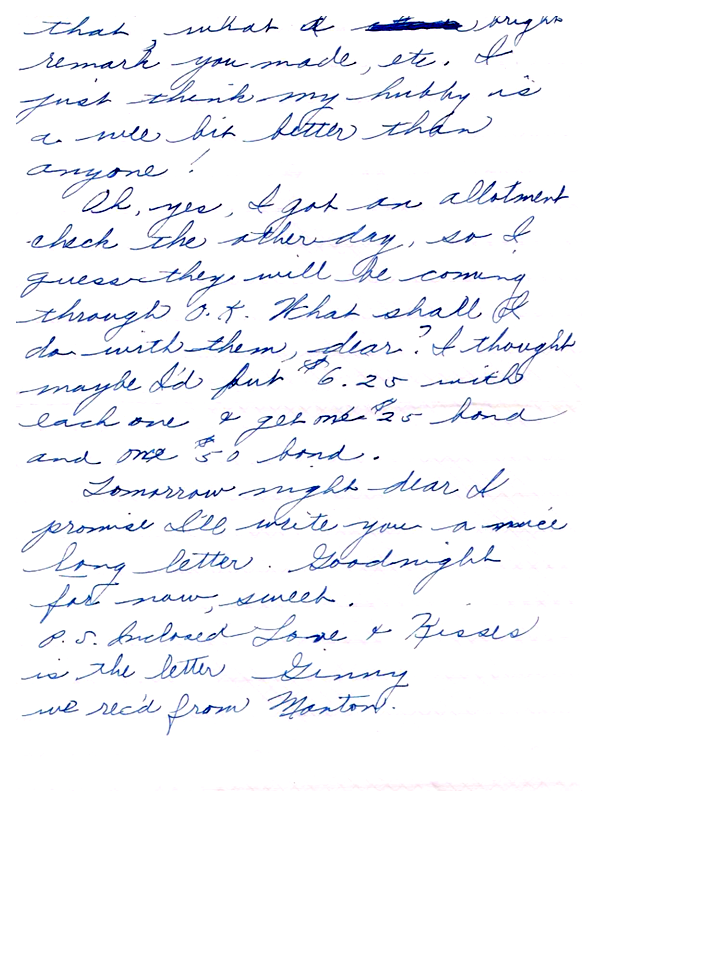 that, what a bright
remark you made, etc. I
just think my hubby is
a wee bit better than
anyone!
Oh, yes, I got an allotment
check the other day, so I
guess they will be coming
through O.K. What shall I
do with them, dear? I thought
maybe I'd put $6.25 with
each one & get one $25 bond
and one $50 bond.
Tomorrow night dear I
promise I'll write you a nice
long letter. Goodnight
for now, sweet.
P.S. Inclosed Love & Kisses
is the letter Ginny
we rec'd from Manton.